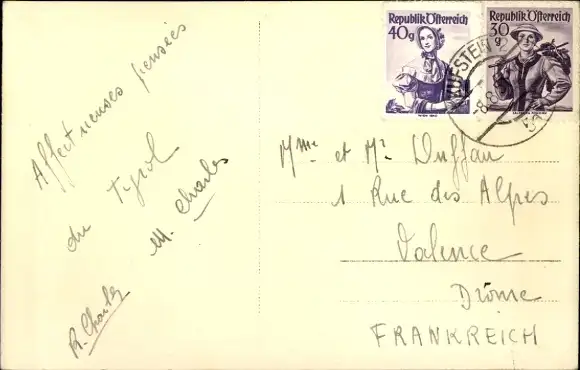 Affectueuses pensées
du Tyrol
M. Charles
R. Charles
Republik Österreich
40g
Republik Österreich
30
g
KUFSTEIN 2
Mme et Mr Duffau
1 Rue des Alpes
Valence
Drôme
FRANKREICH